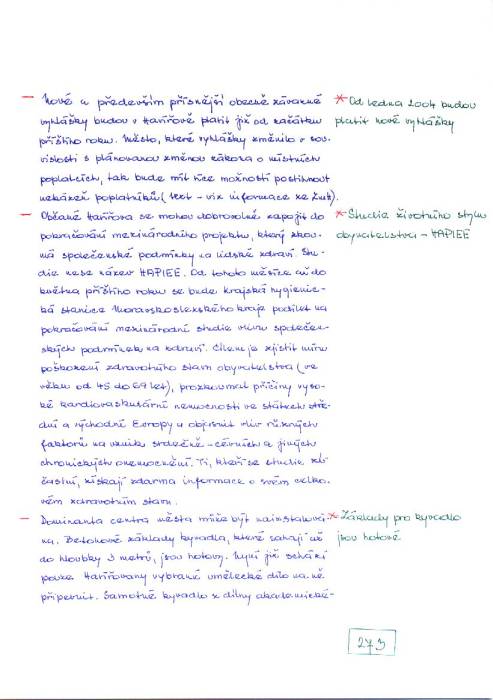 - Nové a především přísnější obecně závazné
vyhlášky budou v Havířově platit již od začátku
příštího roku. Město, které vyhlášky změnilo v sou-
vislosti s plánovanou změnou zákona o místních
poplatcích, tak bude mít více možností postihnout
nekázeň poplatníků (text - viz informace ze ZMH).
* Od ledna 2004 budou
platit nové vyhlášky
- Občané Havířova se mohou dobrovolně zapojit do
pokračování mezinárodního projektu, který zkou-
má společenské podmínky na lidské zdraví. Stu-
die nese název HAPIEE. Od tohoto měsíce až do
května příštího roku se bude krajská hygienic-
ká stanice Moravskoslezského kraje podílet na
pokračování mezinárodní studie vlivu společen-
ských podmínek na zdraví. Cílem je zjistit míru
poškození zdravotního stavu obyvatelstva (ve
věku od 45 do 69 let), prozkoumat příčiny vyso-
ké kardiovaskulární nemocnosti ve státech stře-
dní a východní Evropy a objasnit vliv různých
faktorů na vznik srdečně-cévních a jiných
chronických onemocnění. Ti, kteří se studie zú-
častní, získají zdarma informace o svém celko-
vém zdravotním stavu.
* Studie životního stylu
obyvatelstva - HAPIEE
- Dominanta centra města může být nainstalová-
na. Betonové základy kyvadla, které sahají až
do hloubky 3 metrů, jsou hotovy. Nyní již schází
pouze Havířovany vybrané umělecké dílo na ně
připevnit. Samotné kyvadlo z dílny akademické-
* Základy pro kyvadlo
jsou hotové
273